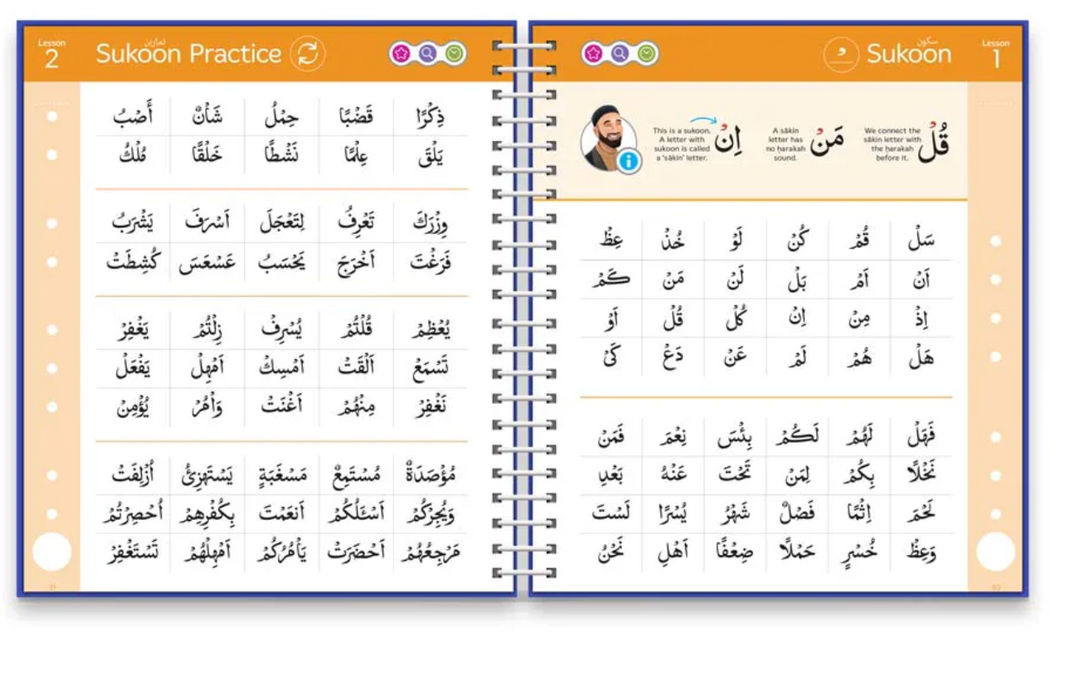 Lesson
1
سكون
Sukoon
This is a sukoon.
A letter with
sukoon is called
a 'sākin' letter.
اِنْ
A sākin
letter has
no ḥarakah
sound.
مَنْ
We connect the
sākin letter with
the ḥarakah
before it.
قُلْ
سَلْ قُمْ كُنْ لَوْ خُذْ عِظْ
اَنْ اَمْ بَلْ لَنْ مَنْ كَمْ
اِذْ مِنْ اِنْ كُلْ قُلْ اَوْ
هَلْ هُمْ لَمْ عَنْ دَعْ كَىْ
فَهَلْ لَهُمْ لَكُمْ بِئْسَ نِعْمَ فَمَنْ
نَخْلًا بِكُمْ لِمَنْ تَحْتَ عَنْهُ بَعْدِ
لَحْمَ اِثْمًا فَضْلٌ شَهْرُ يُسْرًا لَسْتَ
وَعِظْ خُسْرٍ حَمْلًا ضِعْفًا اَهْلِ نَحْنُ
Lesson
2
تمارين
Sukoon Practice
ذِكْرًا قَضْبًا حِمْلُ شَاْنٌ أَصْبُ
يَلْقَ عِلْمًا نَشْطًا خَلْقًا مُلْكُ
وِزْرَكَ تَعْرِفُ لِتَعْجَلَ اَسْرَفَ يَشْرَبُ
فَرَغْتَ اَخْرَجَ يَحْسَبُ عَسْعَسَ كُشِطَتْ
يُعْظِمْ قُلْتُمْ يُسْرِفْ زِلْتُمْ يَغْفِرْ
تَسْمَعْ اَلْقَتْ اَمْسِكْ اَمْهِلْ يَفْعَلْ
نَغْفِرْ مِنْهُمْ اَغْنَتْ وَاْمُرْ يُؤْمِنْ
مُؤْصَدَةٌ مُسْتَمِعٌ مَسْغَبَةٍ يَسْتَهْزِئُ اُزْلِفَتْ
وَيُجِرْكُمْ اَسْـَٔلُكُمْ اَنْعَمْتَ بِكُفْرِهِمْ اُحْصِرْتُمْ
مَرْجِعُهُمْ اَحْضَرَتْ يَاْمُرُكُمْ اَمْهِلْهُمْ تَسْتَغْفِرْ